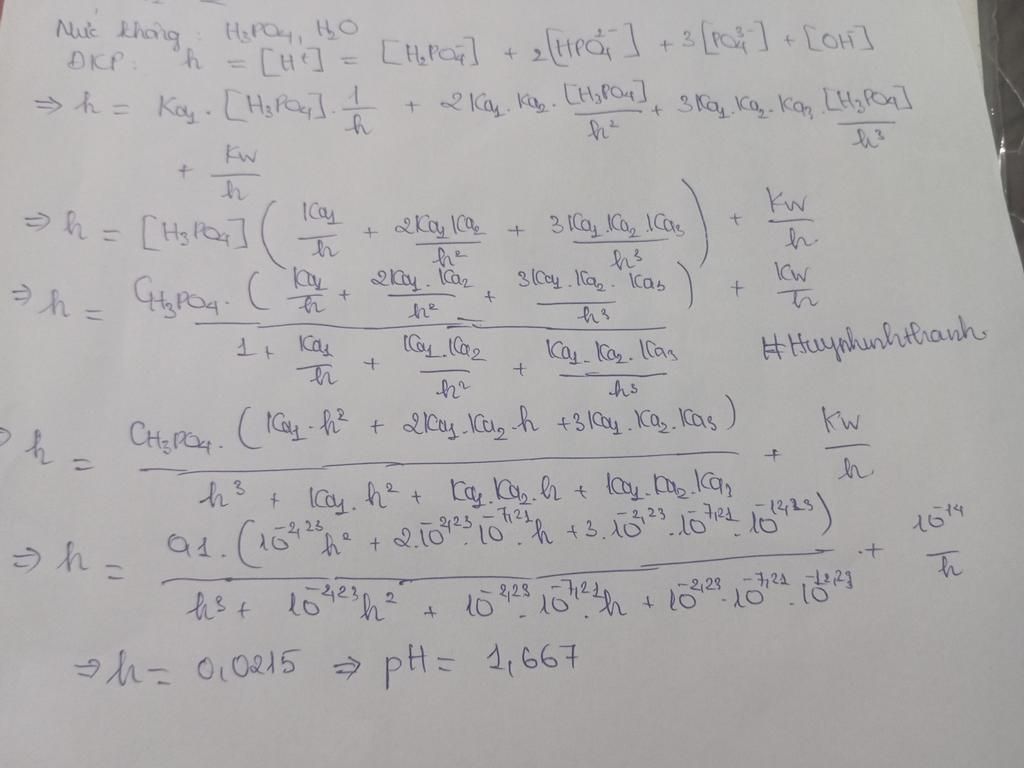 Mức không: H₃PO₄, H₂O
ĐKP: h = [H⁺] = [H₂PO₄⁻] + 2[HPO₄²⁻] + 3[PO₄³⁻] + [OH⁻]
⇒ h = Ka₁ . [H₃PO₄] . 1/h + 2Ka₁ . Ka₂ . [H₃PO₄]/h² + 3Ka₁ . Ka₂ . Ka₃ . [H₃PO₄]/h³
+ Kw/h
⇒ h = [H₃PO₄] ( Ka₁/h + 2Ka₁ Ka₂/h² + 3Ka₁ . Ka₂ . Ka₃/h³ ) + Kw/h
⇒ h = C_H₃PO₄ . ( Ka₁/h + 2Ka₁ . Ka₂/h² + 3Ka₁ . Ka₂ . Ka₃/h³ ) / ( 1 + Ka₁/h + Ka₁ . Ka₂/h² + Ka₁ . Ka₂ . Ka₃/h³ ) + Kw/h
#Huynhinhthanh
⇒ h = C_H₃PO₄ . ( Ka₁ . h² + 2Ka₁ . Ka₂ . h + 3Ka₁ . Ka₂ . Ka₃ ) / ( h³ + Ka₁ . h² + Ka₁ . Ka₂ . h + Ka₁ . Ka₂ . Ka₃ ) + Kw/h
⇒ h = 0,1 . ( 10^-2,23 h² + 2 . 10^-2,23 . 10^-7,21 . h + 3 . 10^-2,23 . 10^-7,21 . 10^-12,23 ) / ( h³ + 10^-2,23 h² + 10^-2,23 . 10^-7,21 . h + 10^-2,23 . 10^-7,21 . 10^-12,23 ) + 10^-14/h
⇒ h = 0,0215 ⇒ pH = 1,667